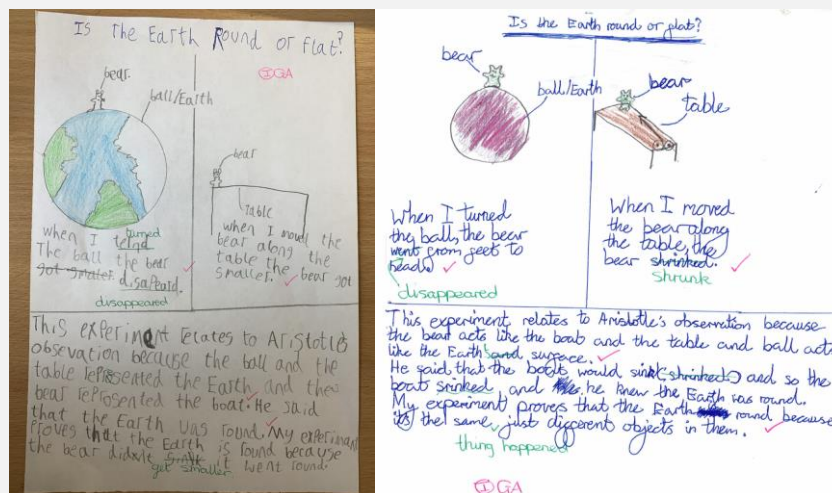 Is the Earth Round or flat?
bear
ball/Earth
IGA
bear
Table
when I ternd
turned
The ball the bear
got smaler disapeard.
disappeared
when I moved the
bear along the
table the bear got
smaller.
This experiment relates to Aristotle
obsevation because the ball and the
table represented the Earth and the
bear represented the boat. He said
that the Earth was round. My experiment
Proves that the Earth is round because
the bear didn't it went round.
get smaller
Is the Earth round or flat?
bear
ball/Earth
bear
table
When I turned
the ball, the bear
went from feet to
head.
disappeared
When I moved
the bear along
the table, the
bear shrinked.
shrunk
This experiment relates to Aristotle's observation because
the bear acts like the boat and the table and ball acts
like the Earth surface.
He said that the boats would sink (shrinked) and so the
boat srinked and he knew the Earth was round.
My experiment proves that the Earth round because
it's the same just different objects in them.
thing happened
IGA